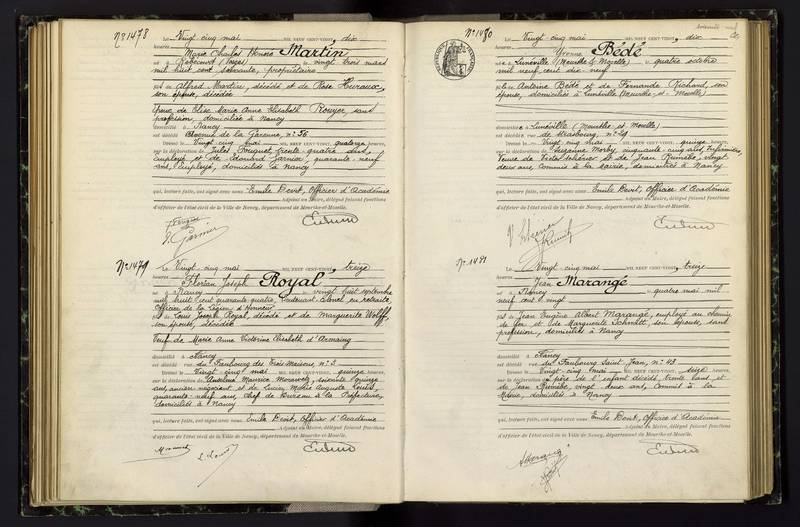 N° 1478
Le Vingt cinq mai MIL NEUF CENT-VINGT, dix
heures
Marie Charles Honoré Martin
né à Rebecourt (Vosges) le vingt trois mars
mil huit cent soixante, propriétaire
fils de Alfred Martin, décédé et de Rose
son épouse, décédée
Époux de Elise Marie Anne Elisabeth Rouyer, sans
profession, domiciliée à Nancy
domicilié à Nancy
est décédé Avenue de la Garenne, n° 36
Dressé le Vingt cinq mai MIL NEUF CENT-VINGT, quatorze heures,
sur la déclaration de Jules Fouquet, trente quatre ans,
employé et de Léonard Garnier, quarante neuf
ans, employé, domiciliés à Nancy
qui, lecture faite, ont signé avec nous Emile Devit, Officier d'Académie
Adjoint au Maire, délégué faisant fonctions
d'officier de l'état civil de la Ville de Nancy, département de Meurthe-et-Moselle.
Garnier
N° 1479
Le Vingt cinq mai MIL NEUF CENT-VINGT, treize
heures
Florian Joseph Royal
né à Nancy le vingt huit septembre
mil huit cent quarante quatre, Lieutenant-Colonel en retraite
Officier de la Légion d'Honneur
fils de Louis Joseph Royal, décédé et de Marguerite Wolff,
son épouse, décédée
Veuf de Marie Anne Victorine Elisabeth d'Armaing
domicilié à Nancy
est décédé rue du Faubourg des Trois Maisons, n° 5
Dressé le Vingt cinq mai MIL NEUF CENT-VINGT, quinze heures,
sur la déclaration de Anselme Maurice soixante quinze
ans, ancien négociant et de Lucien Marie Auguste Louis
quarante-neuf ans, Chef de Bureau à la Préfecture,
domiciliés à Nancy
qui, lecture faite, ont signé avec nous Emile Devit, Officier d'Académie
Adjoint au Maire, délégué faisant fonctions
d'officier de l'état civil de la Ville de Nancy, département de Meurthe-et-Moselle.
L. Louis
N° 1480
Le Vingt cinq mai MIL NEUF CENT-VINGT, dix
heures
Yvonne Bédé
née à Lunéville (Meurthe & Moselle) le quatre octobre
mil neuf cent dix neuf
fille de Antoine Bédé et de Fernande Richard, son
épouse, domiciliés à Lunéville (Meurthe-et-Moselle)
domiciliée à Lunéville (Meurthe et Moselle)
est décédée rue de Strasbourg, n° 29
Dressé le Vingt cinq mai MIL NEUF CENT-VINGT, quinze heures,
sur la déclaration de cinquante-cinq ans, Infirmière,
Veuve de et de Jean Ruinette, vingt
deux ans, Commis à la Mairie, domiciliés à Nancy
qui, lecture faite, ont signé avec nous Emile Devit, Officier d'Académie
Adjoint au Maire, délégué faisant fonctions
d'officier de l'état civil de la Ville de Nancy, département de Meurthe-et-Moselle.
N° 1481
Le Vingt cinq mai MIL NEUF CENT-VINGT, treize
heures
Jean Marangé
né à Nancy le quatre mai mil
neuf cent vingt
fils de Jean Eugène Albert Marangé, employé au chemin
de fer et de Marguerite Schmitt, son épouse, sans
profession, domiciliés à Nancy
domicilié à Nancy
est décédé rue du Faubourg Saint Jean, n° 43
Dressé le Vingt cinq mai MIL NEUF CENT-VINGT, seize heures,
sur la déclaration du père de l'enfant décédé, trente ans, et
de Jean Ruinette, vingt deux ans, Commis à la
Mairie, domiciliés à Nancy
qui, lecture faite, ont signé avec nous Emile Devit, Officier d'Académie
Adjoint au Maire, délégué faisant fonctions
d'officier de l'état civil de la Ville de Nancy, département de Meurthe-et-Moselle.